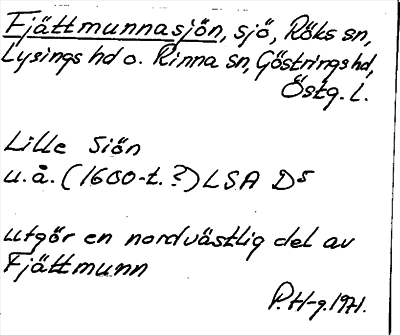 Fjättmunnasjön, sjö, Röks sn,
Lysings hd o. Rinna sn, Göstrings hd,
Östg. l.
Lille Siön
u.å. (1600-t.?) LSA D5
utgör en nordvästlig del av
Fjättmunn
P.H-g. 1971.